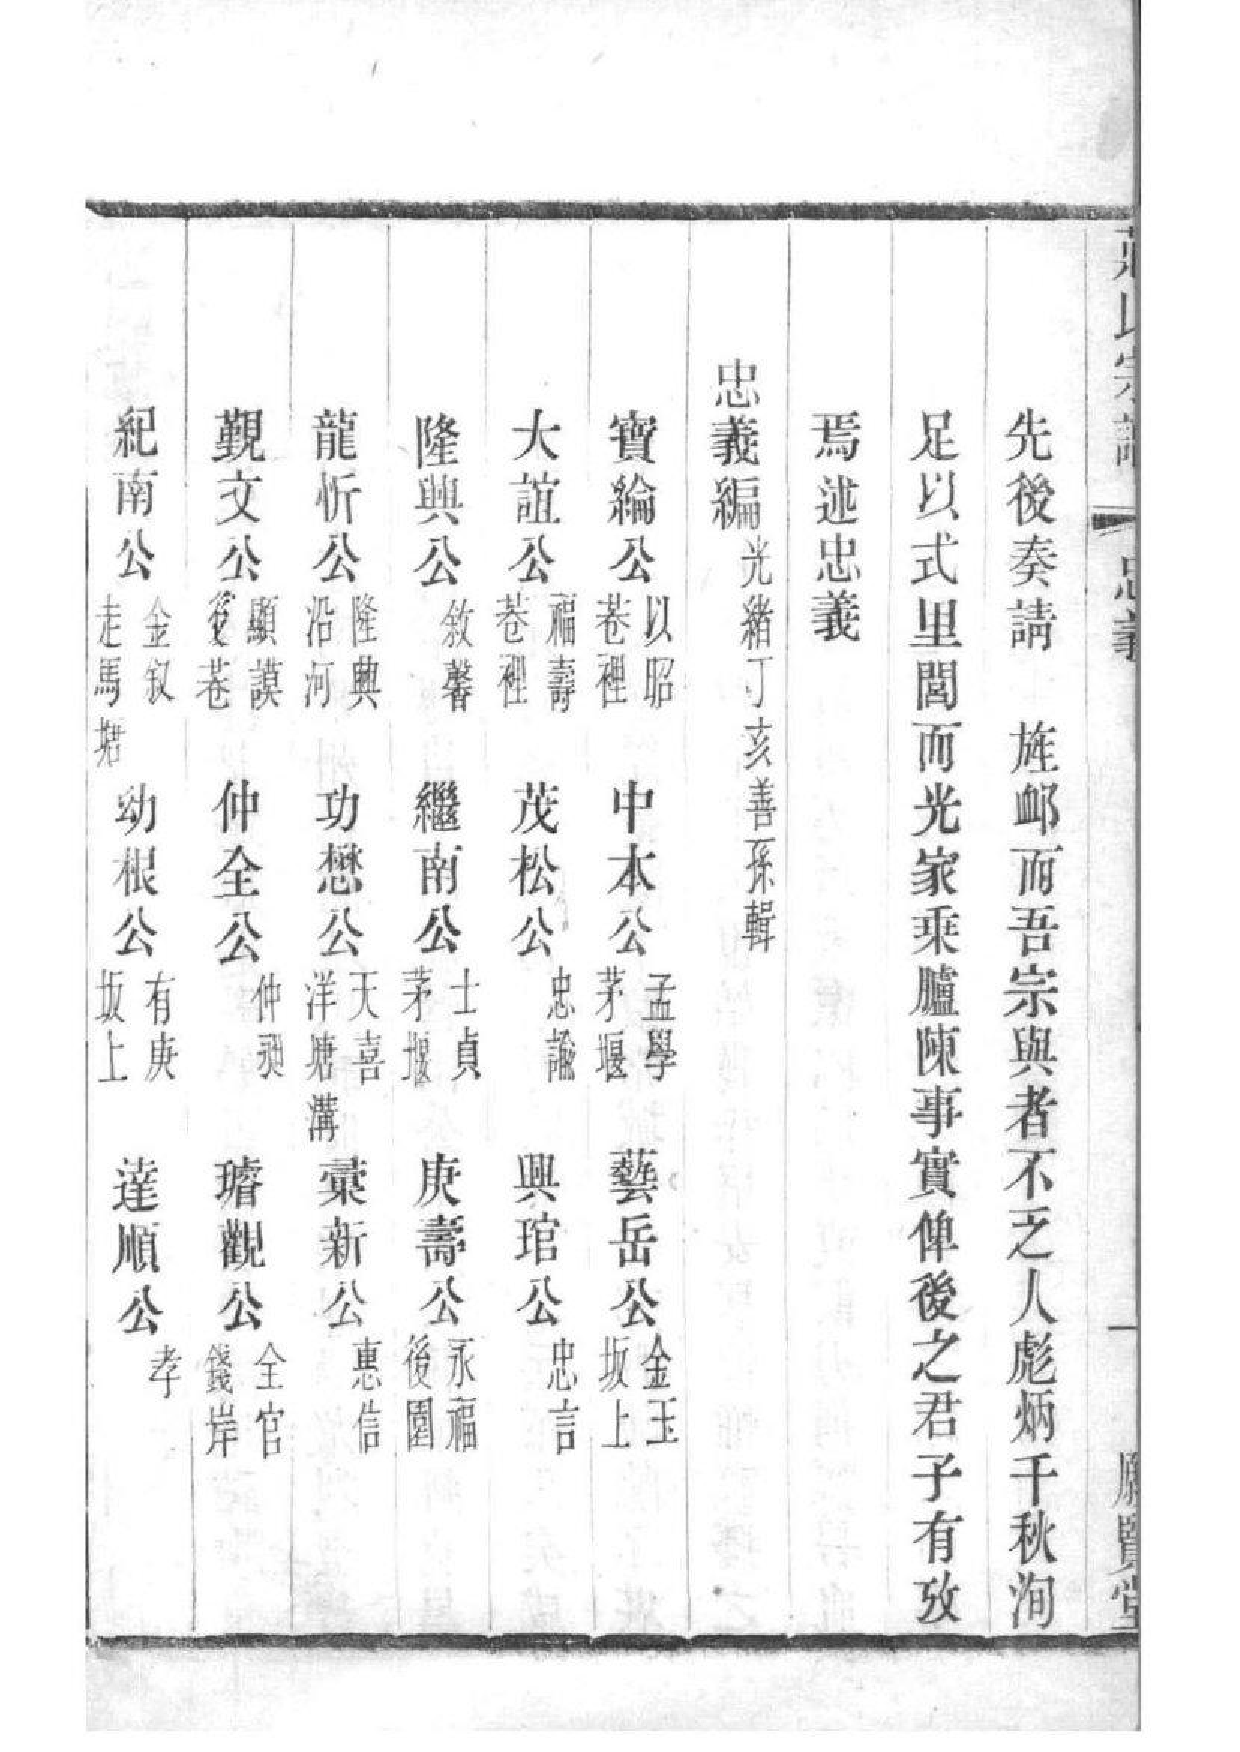 莊氏宗譜 忠義 一 願賢堂
先後奏請 旌卹而吾宗與者不乏人彪炳千秋洵
足以式里閭而光家乘臚陳事實俾後之君子有攷
焉述忠義
忠義編 光緒丁亥善孫輯
寶綸公 以昭 巷裡 中本公 孟學 茅堰 藝岳公 金玉 坂上
大誼公 福壽 巷裡 茂松公 忠諭 興琯公 忠言
隆興公 敘馨 繼南公 士貞 茅堰 庚壽公 永福 後園
龍忻公 隆興 沿河 功懋公 天喜 洋塘溝 彙新公 惠信
觐文公 顯謨 後巷 仲全公 仲昶 璿觀公 全官 錢岸
紀南公 金叙 走馬塘 幼根公 有庚 坂上 達順公 孝